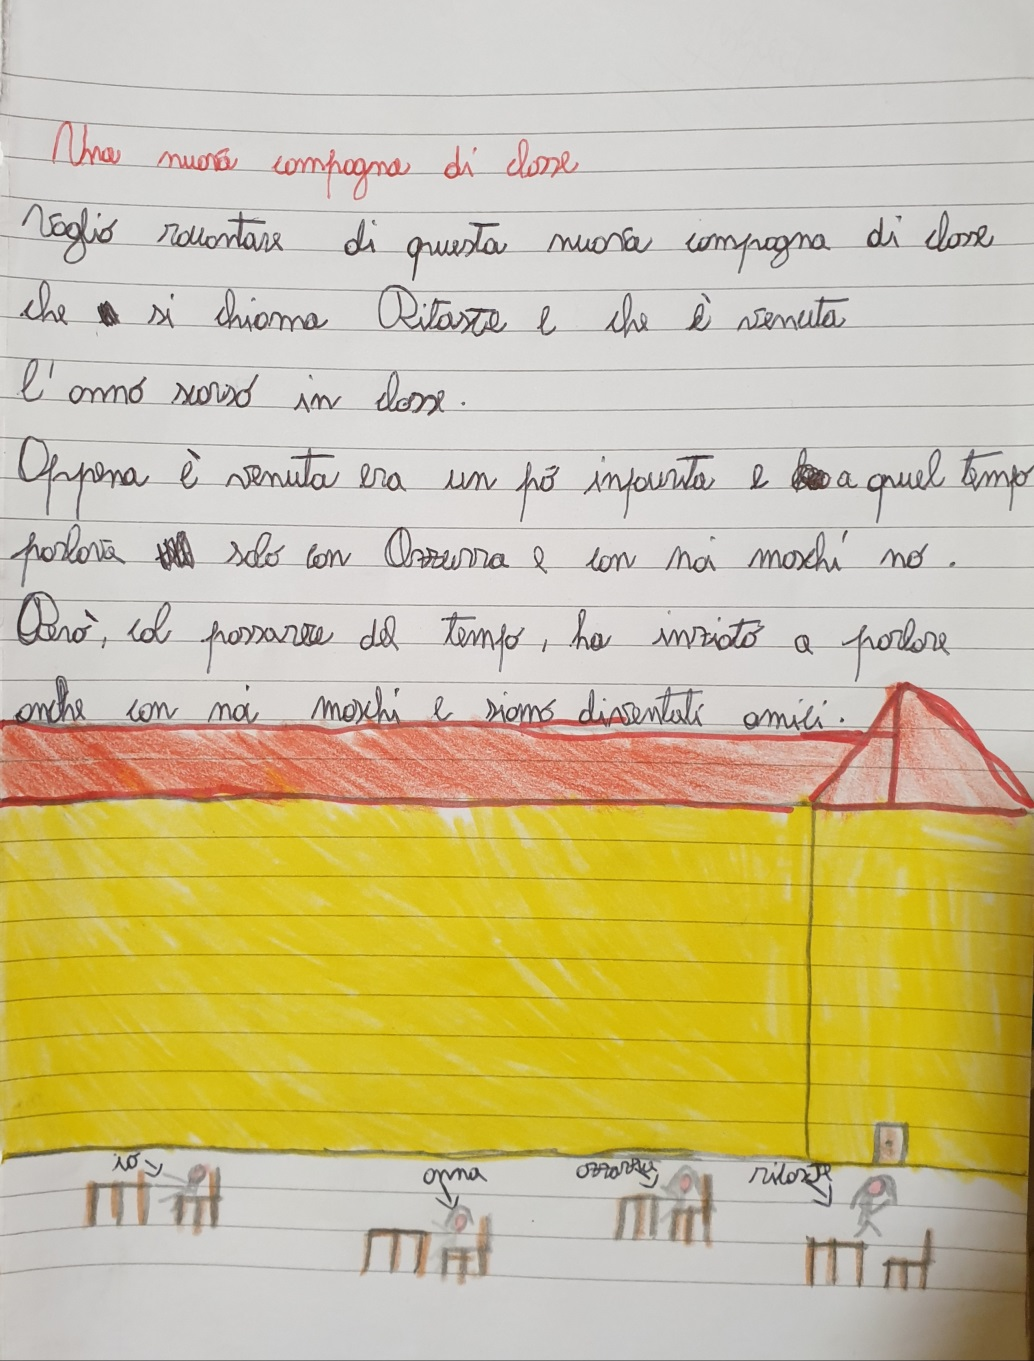 Una nuova compagna di classe
Voglio raccontare di questa nuova compagna di classe
che si chiama Ritaste e che è venuta
l'anno scorso in classe.
Appena è venuta era un pó impaurita e a quel tempo
parlava solo con Azzurra e con noi maschi no.
Però, col passare del tempo, ha iniziato a parlare
anche con noi maschi e siamo diventati amici.
io
anna